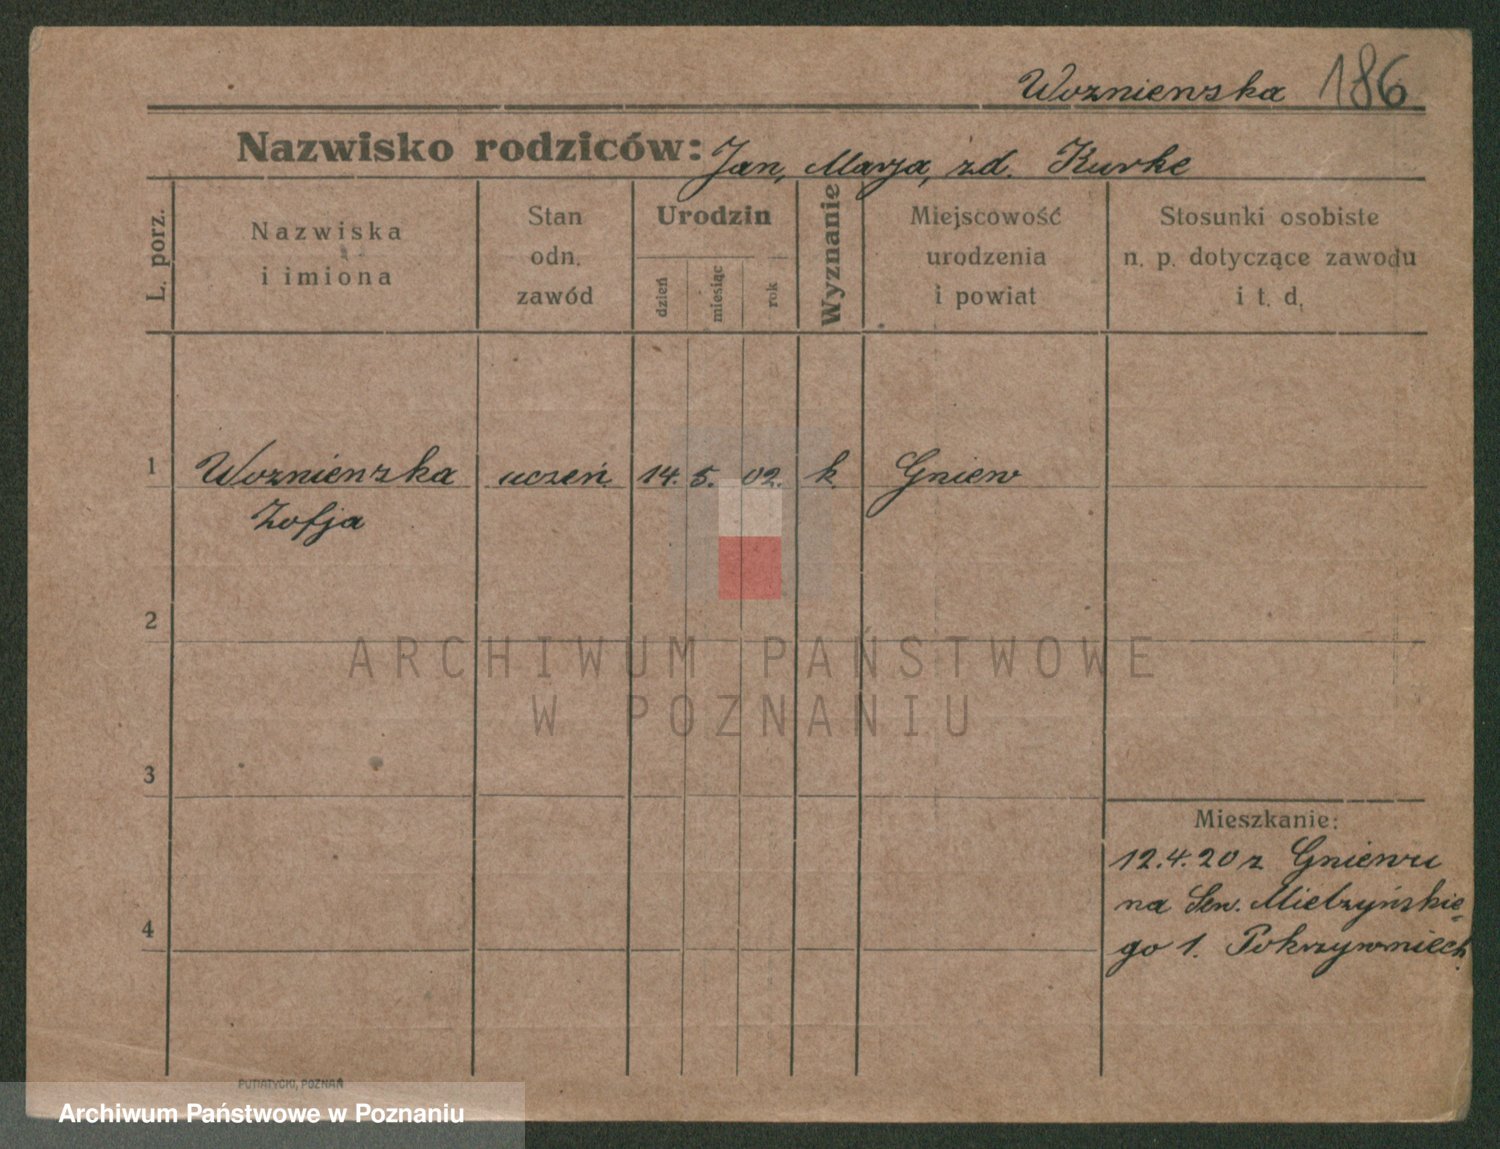 Wozniewska 186
Nazwisko rodziców: Jan, Marja, zd. Kurke
L. porz.
Nazwiska
i imiona
Stan
odn.
zawód
Urodzin
dzień
miesiąc
rok
Wyznanie
Miejscowość
urodzenia
i powiat
Stosunki osobiste
n. p. dotyczące zawodu
i t. d.
1 Woznienska uczeń. 14. 5. 02. k. Gniew
Zofja
2
ARCHIWUM PAŃSTWOWE
W POZNANIU
3
Mieszkanie:
12.4.20 z Gniewu
na Sew. Mielzyńskie=
4
go 1. Pokrzywniech.
PUTIATYCKI, POZNAŃ
Archiwum Państwowe w Poznaniu